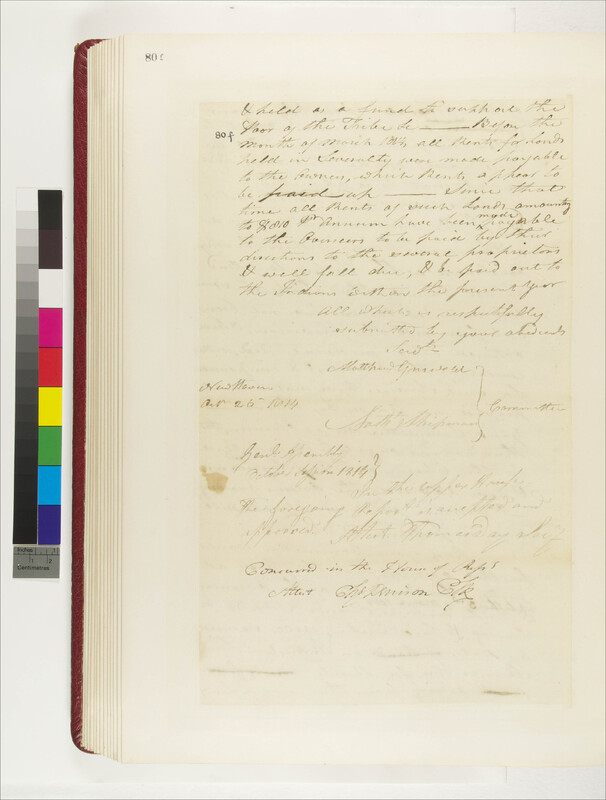 80f
& held as a fund to support the
80f
Poor of the Tribe &c — Before the
month of March 1814 all Rents for Lands
held in Severalty were made payable
to the owners, which Rents appear to
be paid up — Since that
time all Rents of such Lands amounting
to $ 810 Pr Annum have been made payable
to the Overseers to be paid by their
directions to the several proprietors
& will fall due, & be paid out to
the Indians within the present year
All which is respectfully
submitted by your obedients
Servts
Matthew Griswold
New Haven
Oct 24 1814
Committee
Nathl Shipman
Genl Assembly
October Session 1814
In the Upper House
the foregoing Report is accepted and
approved
Attest Thomas Day Secy
Concurred in the House of Reps
Attest Chs Denison Clk